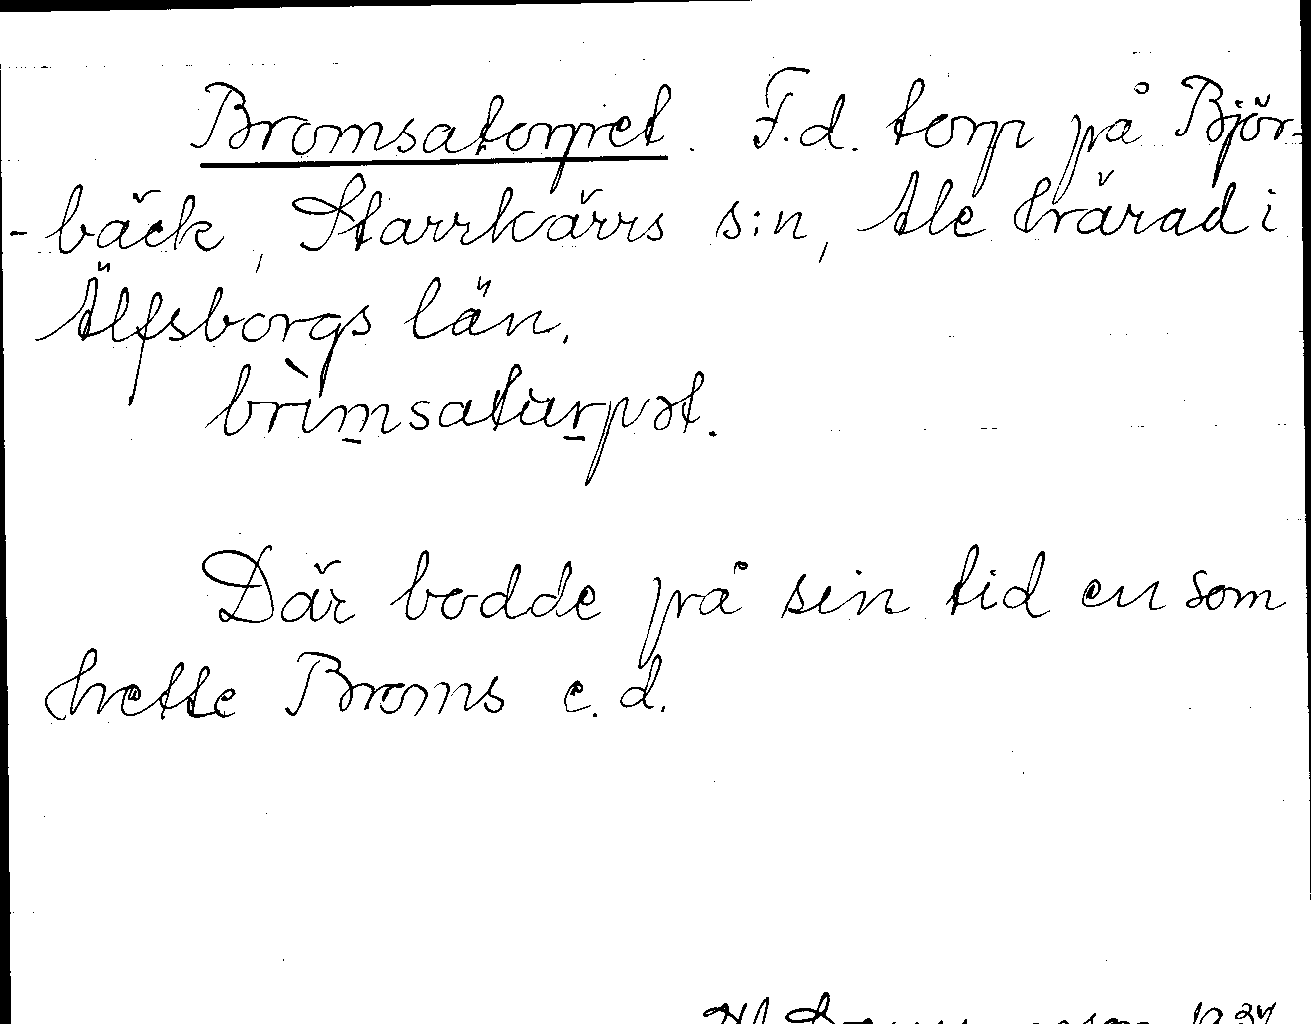 Bromsatorpet. F.d. torp på Björ-
-bäck, Starrkärrs s:n, Ale härad i
Älfsborgs län.
brìmsaturpət.
Där bodde på sin tid en som
hette Broms e.d.